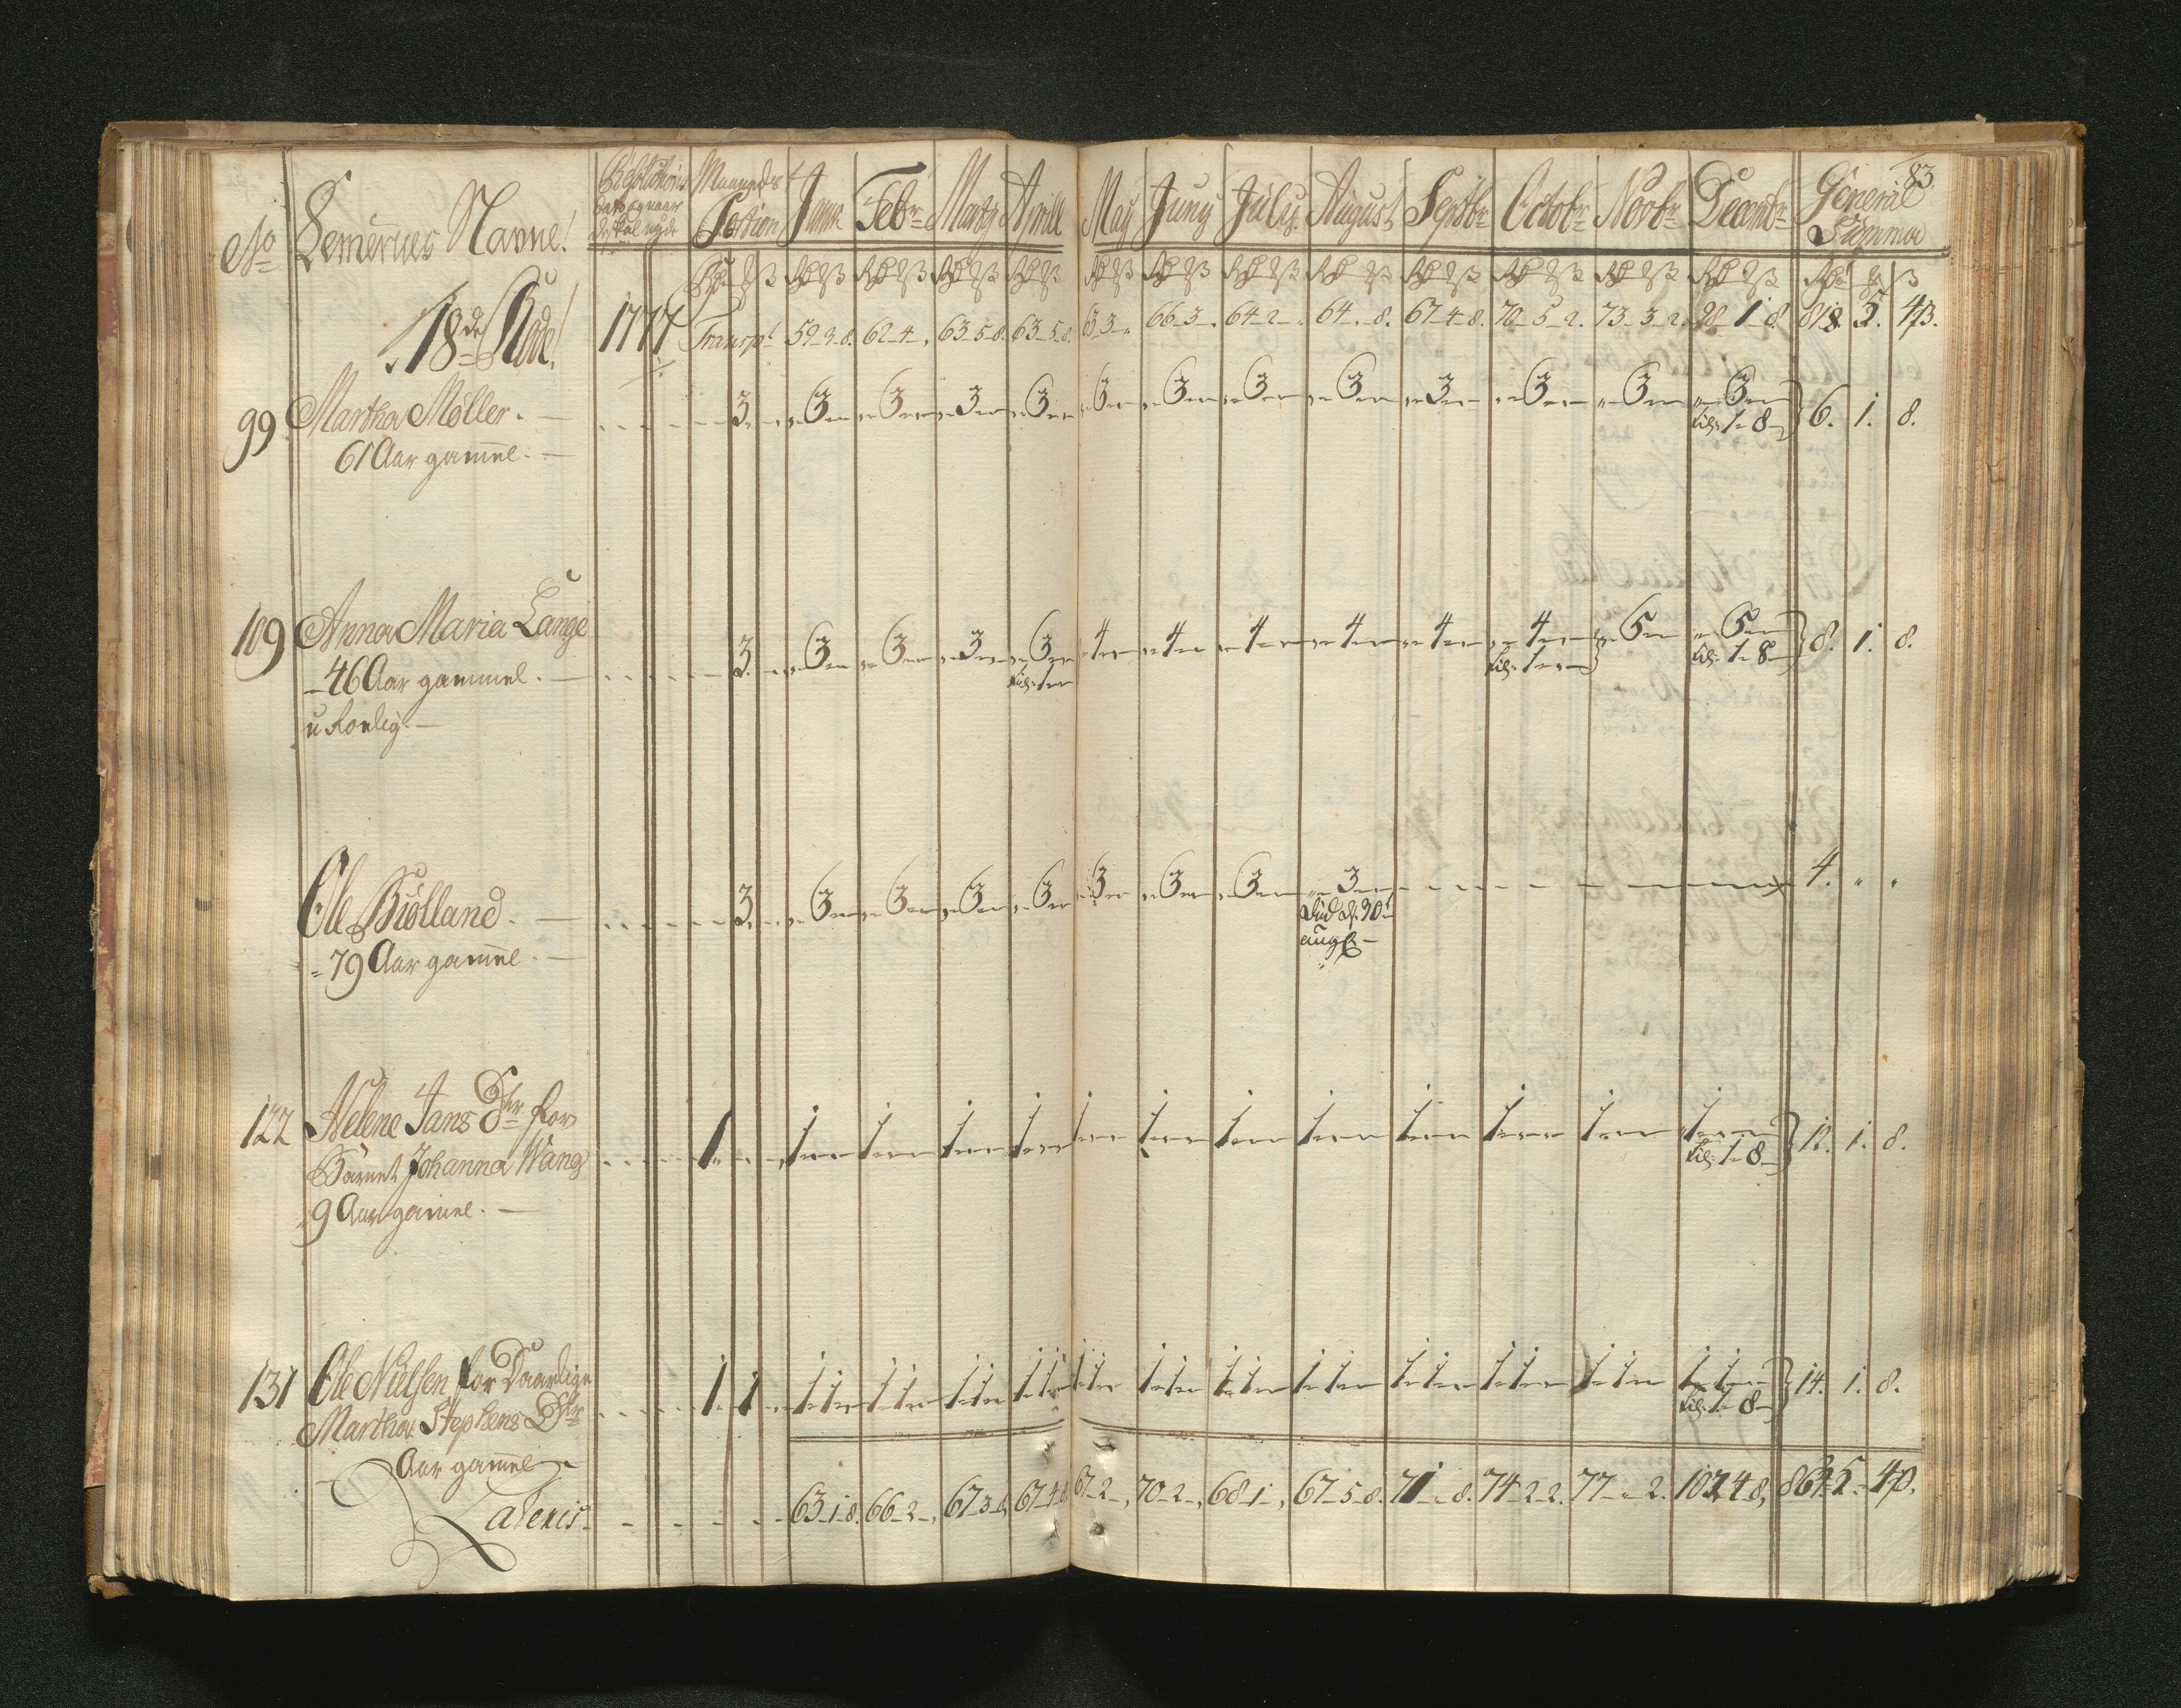 83.
No Lemernes Navne! Resolutions dato og naar de skal nyde Maaneds Portion Janr Febr Martz Aprill May Juny July August Septbr Octobr Novbr Decembr General Summa
18de Rode! 1777 Transpt 59 - 3 - 8. 62 - 4 - , 63 - 5 - 8. 63 - 5 - 8. 63 - 3 - „ 66 - 3 - , 64 - 2 - „ 64 - „ - 8. 67 - 4 - 8. 70 - 5 - 2. 73 - 3 - 2. 98 - 1 - 8. 818. 5. 4β.
99 Martha Møller. - 3. „ 3 „ 3 „ 3 „ 3 „ 3 „ 3 „ 3 „ 3 „ 3 „ 3 „ 3 „ 3 } 6. 1. 8.
Til: 1 - 8
61 Aar gam̄el. -
109 Anna Maria Lange 3. „ 3 „ 3 „ 3 „ 3 „ 4 „ 4 „ 4 „ 4 „ 4 „ 4 „ 5 „ 5 } 8. 1. 8.
Til: 1 Til: 1 Til: 1 - 8
- 46 Aar gammel. -
u Roelig. -
Ole Biølland. - 3. „ 3 „ 3 „ 3 „ 3 „ 3 „ 3 „ 3 „ 3 4. „ „
Død d: 30t
aug.
- 79 Aar gam̄el. -
122 Helene Jans Dtr for 1. 1 1 1 1 1 1 1 1 1 1 1 1 } 12. 1. 8.
Barnet Johanna Wang Til: 1 - 8
9 Aar gam̄el. -
131 Ole Nielsen for Daarlige 1. 1 1-1 1-1 1-1 1-1 1-1 1-1 1-1 1-1 1-1 1-1 1-1 1-1 } 14. 1. 8.
Martha Stephens Dtr Til: 1 - 8
Aar gam̄el
Lateris 63 - 1 - 8. 66 - 2 - , 67 - 3 - 8, 67 - 4 - 8. 67 - 2 - , 70 - 2 - , 68 - 1 - , 67 - 5 - 8. 71 - „ - 8. 74 - 2 - 2. 77 - „ - 2. 102 - 4 - 8, 864 - 5 - 4β.